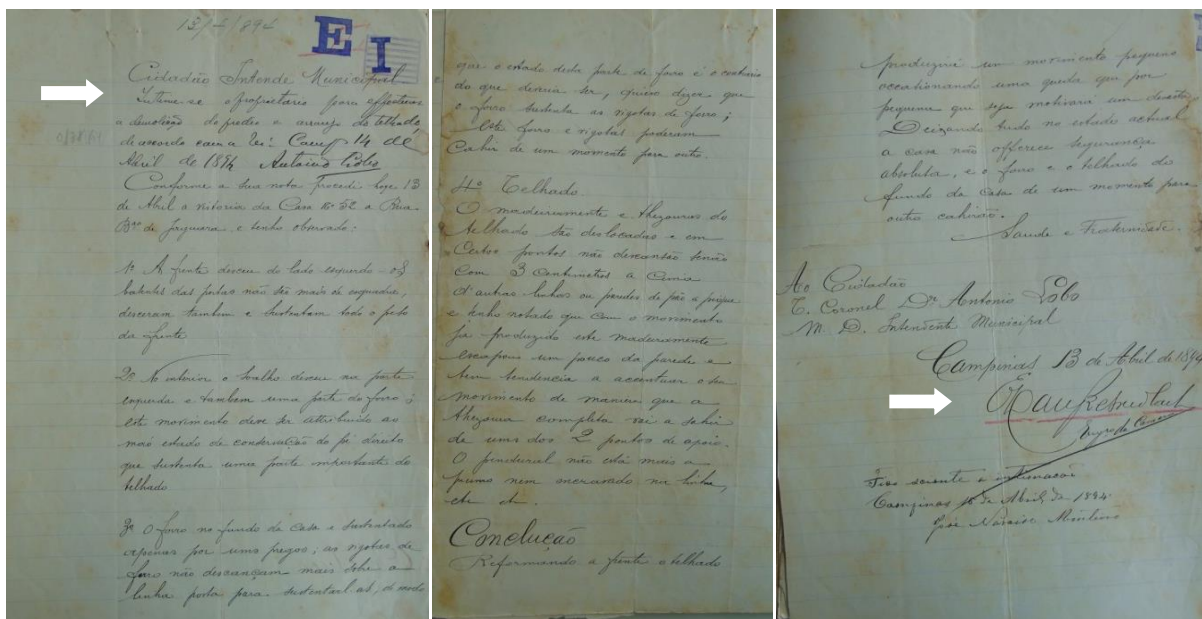 13/4/894
E I
Cidadão Intende Municipal
Intime-se o proprietario para effectuar
a demolição do predio e arranjo do telhado,
de accordo com a lei. Camp. 14 de
Abril de 1894 Antonio Lobo
Conforme a sua nota procedi hoje 13
de Abril a vistoria da Casa Nº 52 a Rua
Bão de Jaguara e tenho observado:
1º A frente desceu do lado esquerdo - os
batentes das portas não são mais de esquadria,
desceram tambem e sustentam todo o peso
da frente
2º No interior o soalho desceu na parte
esquerda e tambem uma parte do forro;
este movimento deve ser attribuido ao
mao estado de conservação do pé direito
que sustenta uma parte importante do
telhado
3º O forro no fundo da casa é sustentado
apenas por uns pregos; as vigotas de
forro não descançam mais sobre a
linha posta para sustental as, de modo
que o estado desta parte de forro é o contrario
do que deveria ser, quero dizer que
o forro sustenta as vigotas de forro;
este forro e vigotas poderam
cahir de um momento para outro.
4º Telhado.
O madeiramente e thezouras do
telhado são deslocadas e em
certos pontos não descansão senão
com 3 centimetros a cima
d'outras linhas ou paredes de pão a pique
e tenho notado que com o movimento
ja produzido este madeiramente
escapou um pouco da parede e
tem tendencia a accentuar o seu
movimento de maneira que a
thezoura completa vai a sahir
de uns dos 2 pontos de apoio.
O pendural não está mais a
prumo nem encravado na linha,
etc etc.
Conclução
Reformando a frente o telhado
produzira um movimento pequeno
occasionando uma queda que por
pequena que seja motivará um desastre
Deixando tudo no estado actual
a casa não offerece segurança
absoluta, e o forro e o telhado do
fundo da casa de um momento para
outro cahirão.
Saude e Fraternidade.
Ao Cidadão
T. Coronel Dr Antonio Lobo
M. D. Intendente Municipal
Campinas 13 de Abril de 1894
Fico sciente a intimação
Campinas 16 de Abril de 1894
José